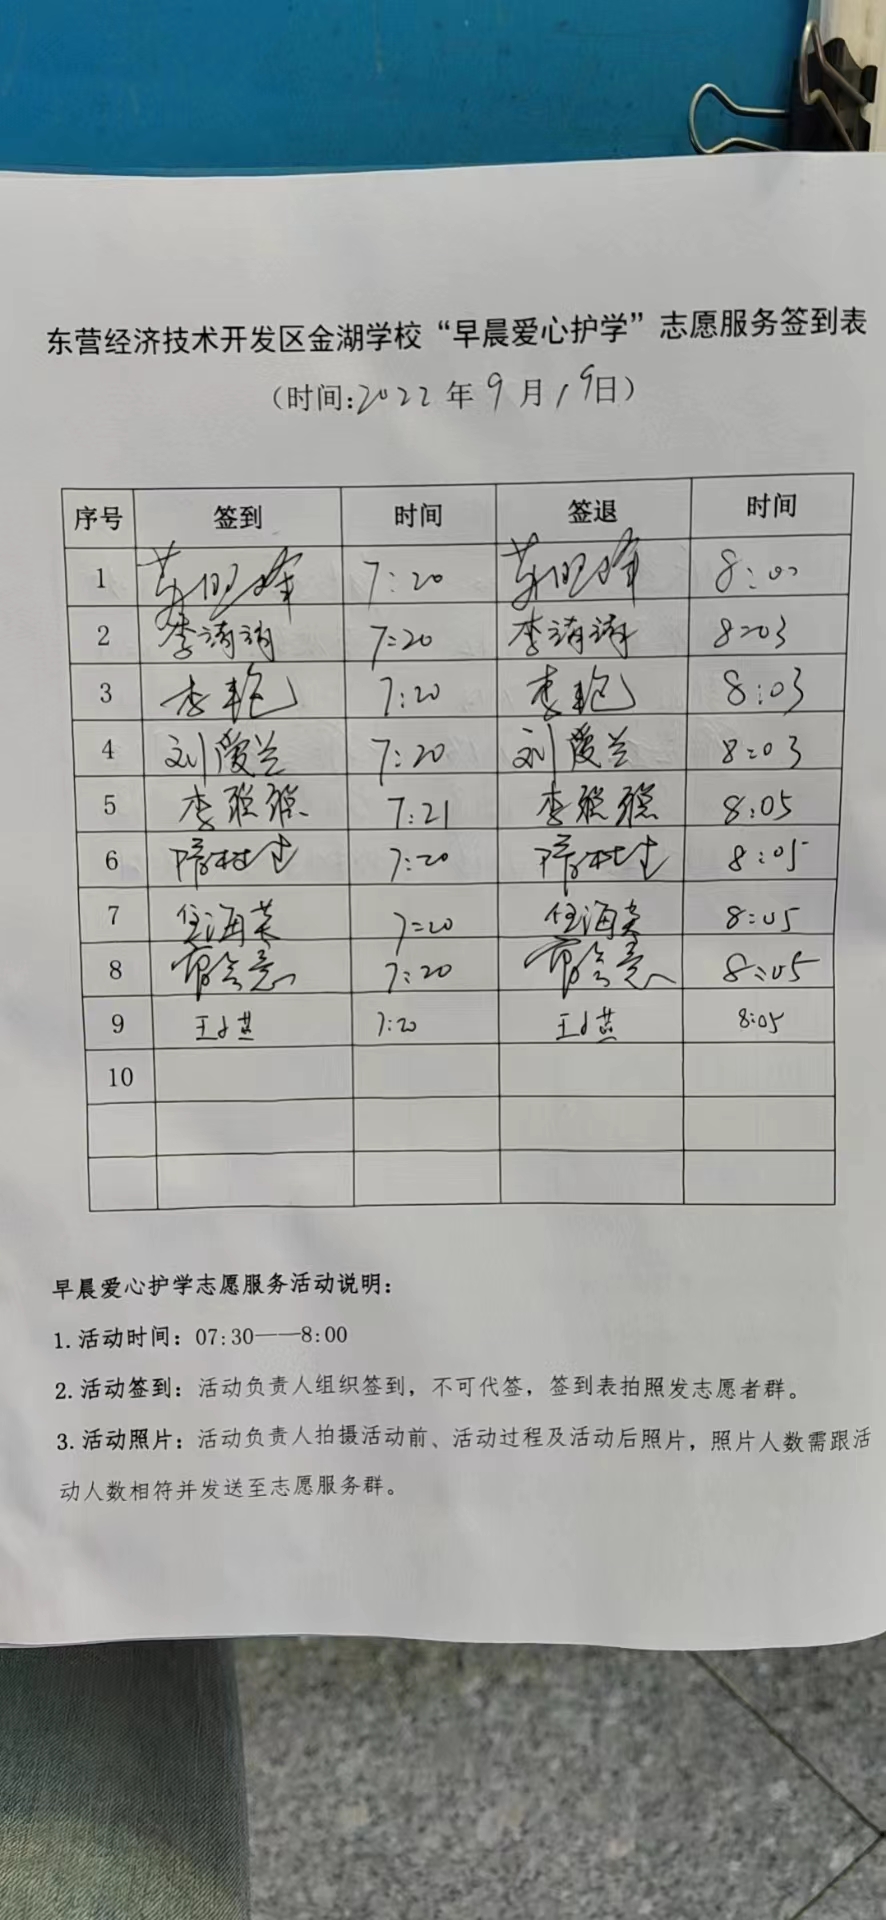 东营经济技术开发区金湖学校“早晨爱心护学”志愿服务签到表
（时间:2022年9月19日）
序号 签到 时间 签退 时间
1 7:20 8:00
2 李清清 7:20 李清清 8:03
3 李艳 7:20 李艳 8:03
4 刘爱兰 7:20 刘爱兰 8:03
5 李 7:21 李 8:05
6 7:20 8:05
7 任海英 7:20 任海英 8:05
8 7:20 8:05
9 王小燕 7:20 王小燕 8:05
10
早晨爱心护学志愿服务活动说明：
1.活动时间：07:30——8:00
2.活动签到：活动负责人组织签到，不可代签，签到表拍照发志愿者群。
3.活动照片：活动负责人拍摄活动前、活动过程及活动后照片，照片人数需跟活
动人数相符并发送至志愿服务群。